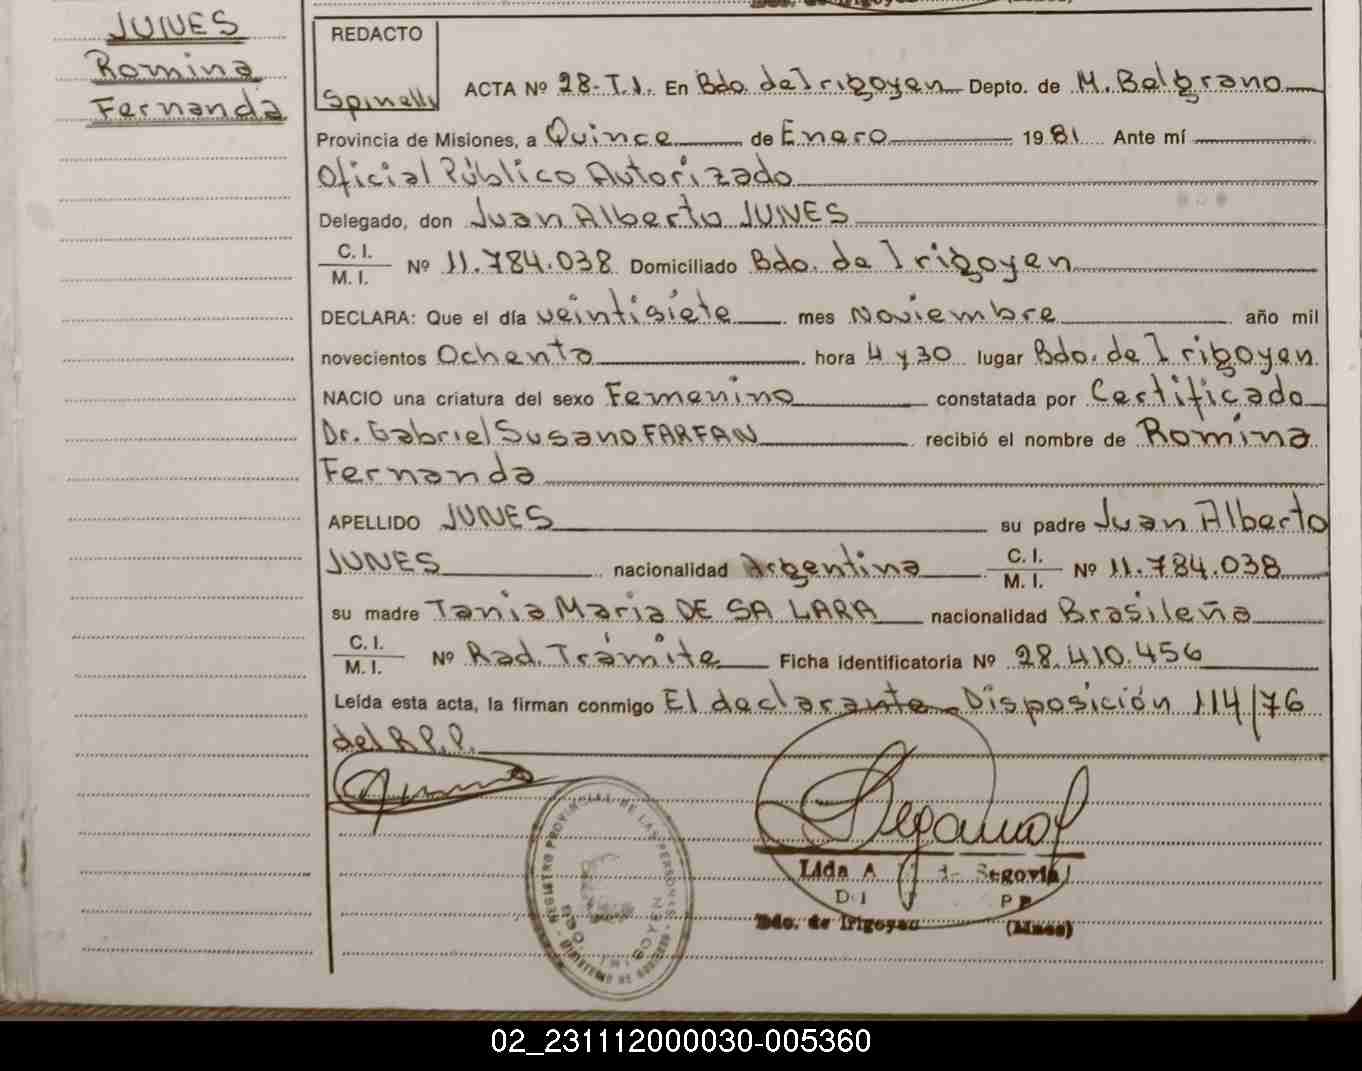 JUNES
Romina
Fernanda
REDACTO
Spinelli
ACTA Nº 28-T.1. En Bdo. de Irigoyen Depto. de M. Belgrano
Provincia de Misiones, a Quince de Enero 1981 Ante mí
Oficial Público Autorizado
Delegado, don Juan Alberto JUNES
C. I.
M. I. Nº 11.784.038 Domiciliado Bdo. de Irigoyen
DECLARA: Que el día veintisiete mes Noviembre año mil
novecientos Ochenta hora 4 y 30 lugar Bdo. de Irigoyen
NACIO una criatura del sexo Femenino constatada por Certificado
Dr. Gabriel Susano FARFAN recibió el nombre de Romina
Fernanda
APELLIDO JUNES su padre Juan Alberto
JUNES nacionalidad Argentina C. I. M. I. Nº 11.784.038
su madre Tania Maria DE SA LARA nacionalidad Brasileña
C. I.
M. I. Nº Rad. Trámite Ficha identificatoria Nº 28.410.456
Leída esta acta, la firman conmigo El declarante Disposición 114/76
del R.P.P.
REGISTRO PROVINCIAL DE LAS PERSONAS
Lida A Segovia
Bdo. de Irigoyen (Mnes)
02_231112000030-005360